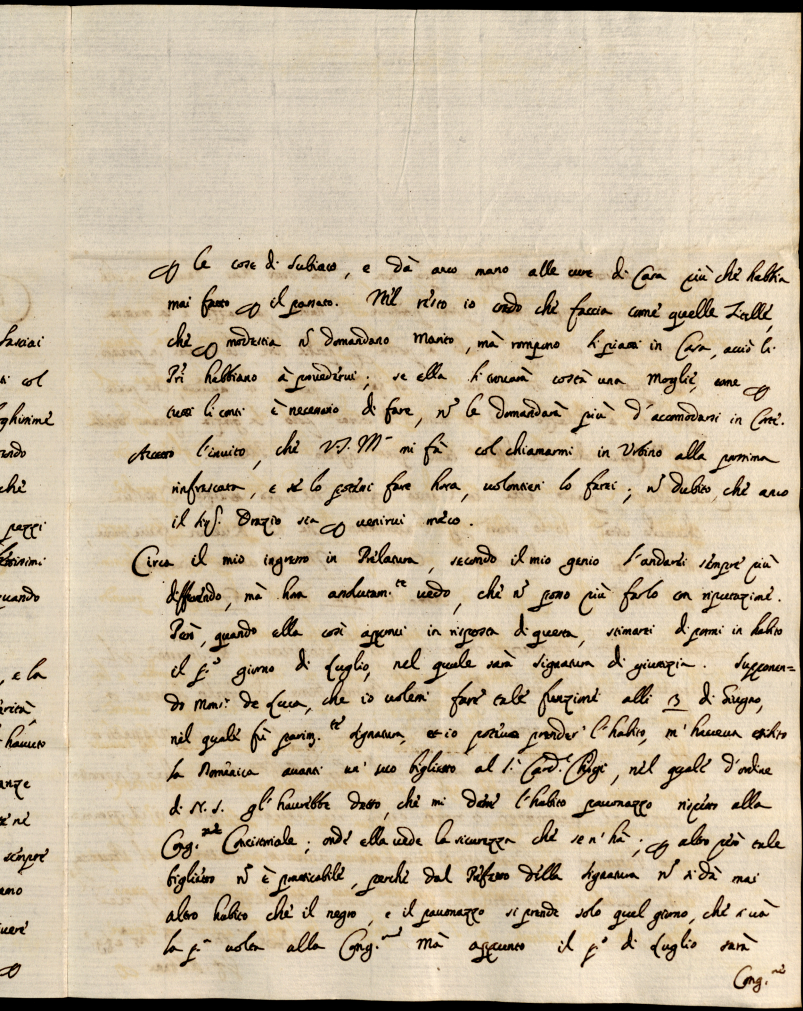 le cose di Subiaco, e dà anco mano alle cure di Casa più che habbia
mai fatto il passato. Nel resto io credo che faccia come quelle Zitelle,
che modestia nõ domandano Marito, mà rompono li piatti in Casa, acciò li
Pri habbiano à provedervi; se ella li trovarà costà una Moglie, come
tutti li conti è necessario di fare, nõ le domandarà più d'accomodarsi in Corte.
Accetto l'invito, che V.S. Ill.ma mi fà col chiamarmi in Urbino alla prossima
rinfrescata, e se lo potessi fare hora, volontieri lo farei; nõ dubito, che anco
il Sig.r Orazio sia venirvi meco.
Circa il mio ingresso in Prelatura, secondo il mio genio l'andarei sempre più
differendo, mà hora assolutam.te vedo, che nõ posso più farlo con riputazione.
Però, quando ella così approvi in risposta di questa, stimarei di pormi in habito
il p.o giorno di Luglio, nel quale sarà Signatura di giustizia. Supponen=
do Mons.r de Luca, che io volessi fare tale funzione alli 13 di Giugno,
nel quale fù parim.te Signatura, et io potevo prender l'habito, m'haveva esibito
la Domenica avanti un suo biglietto al S.r Card.l Chigi, nel quale d'ordine
di N. S. gl'haverebbe detto, che mi desse l'habito pavonazzo rispetto alla
Cong.ne Concistoriale; onde ella vede la sicurezza che se n'hà; altro però tale
biglietto nõ è praticabile, perche dal Prefetto della Signatura nõ si dà mai
altro habito che il negro, e il pavonazzo si prende solo quel giorno, che si và
la p.a volta alla Cong.ne Mà appunto il p.o di Luglio sarà
Cong.ne